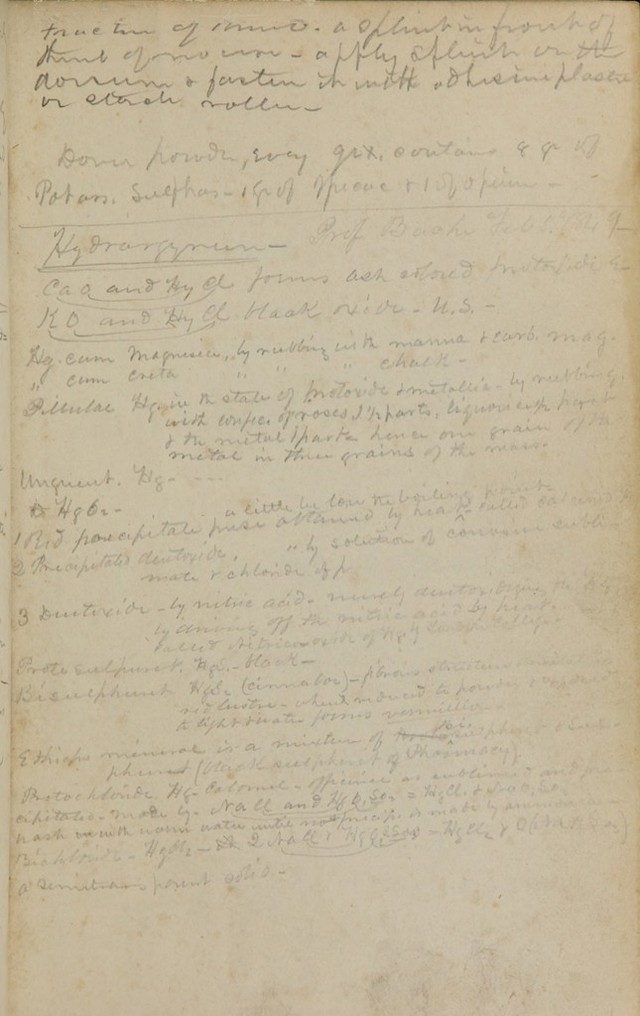 a splint in front &
thumb of no use - apply splint on the
dorsum & fasten it with adhesive plaster
or starch roller -
Dover powder, every grx. contains 8 gr of
Potass. Sulphas - 1 gr of Ipecac & 1 of opium -
Hydrargyrum - Prof Bache Feb
CaO and HyCl forms ash colored protoxide &
KO and HyCl black oxide - U.S. -
Hg. cum Magnesia, by rubbing with manna & carb. mag.
" cum creta " " " chalk -
Pillulae Hg. in the state of protoxide & metallic - by rubbing
with confec. of roses, parts, liquorice part
& the metal parts hence one grain of the
metal in three grains of the mass.
Unguent. Hg -
HgO2 -
a little below the boiling point
1 Red precipitate obtained by heat called
2 Precipitated deutoxide, " by solution of corrosive subli
mate & chloride of
3 Deutoxide - by nitric acid - merely deutoxidizing the Hg
by driving off the nitric acid by heat
called Nitric oxide of Hg by London College -
Proto sulphuret. HgS. - black -
Bisulphuret HgS2 (cinnabar) - fibrous structure
red lustre - when reduced to powder &
to light & water forms vermillion -
Ethiops mineral is a mixture of bisulphuret & sul-
phur (black sulphuret of Pharmacy).
Protochloride Hg - Calomel - officinal as sublimed and pre
cipitate. made by NaCl and
wash with warm water until no precip. is made by ammonia -
Bichloride - HgCl2 - 2 NaCl
a semitransparent solid. -